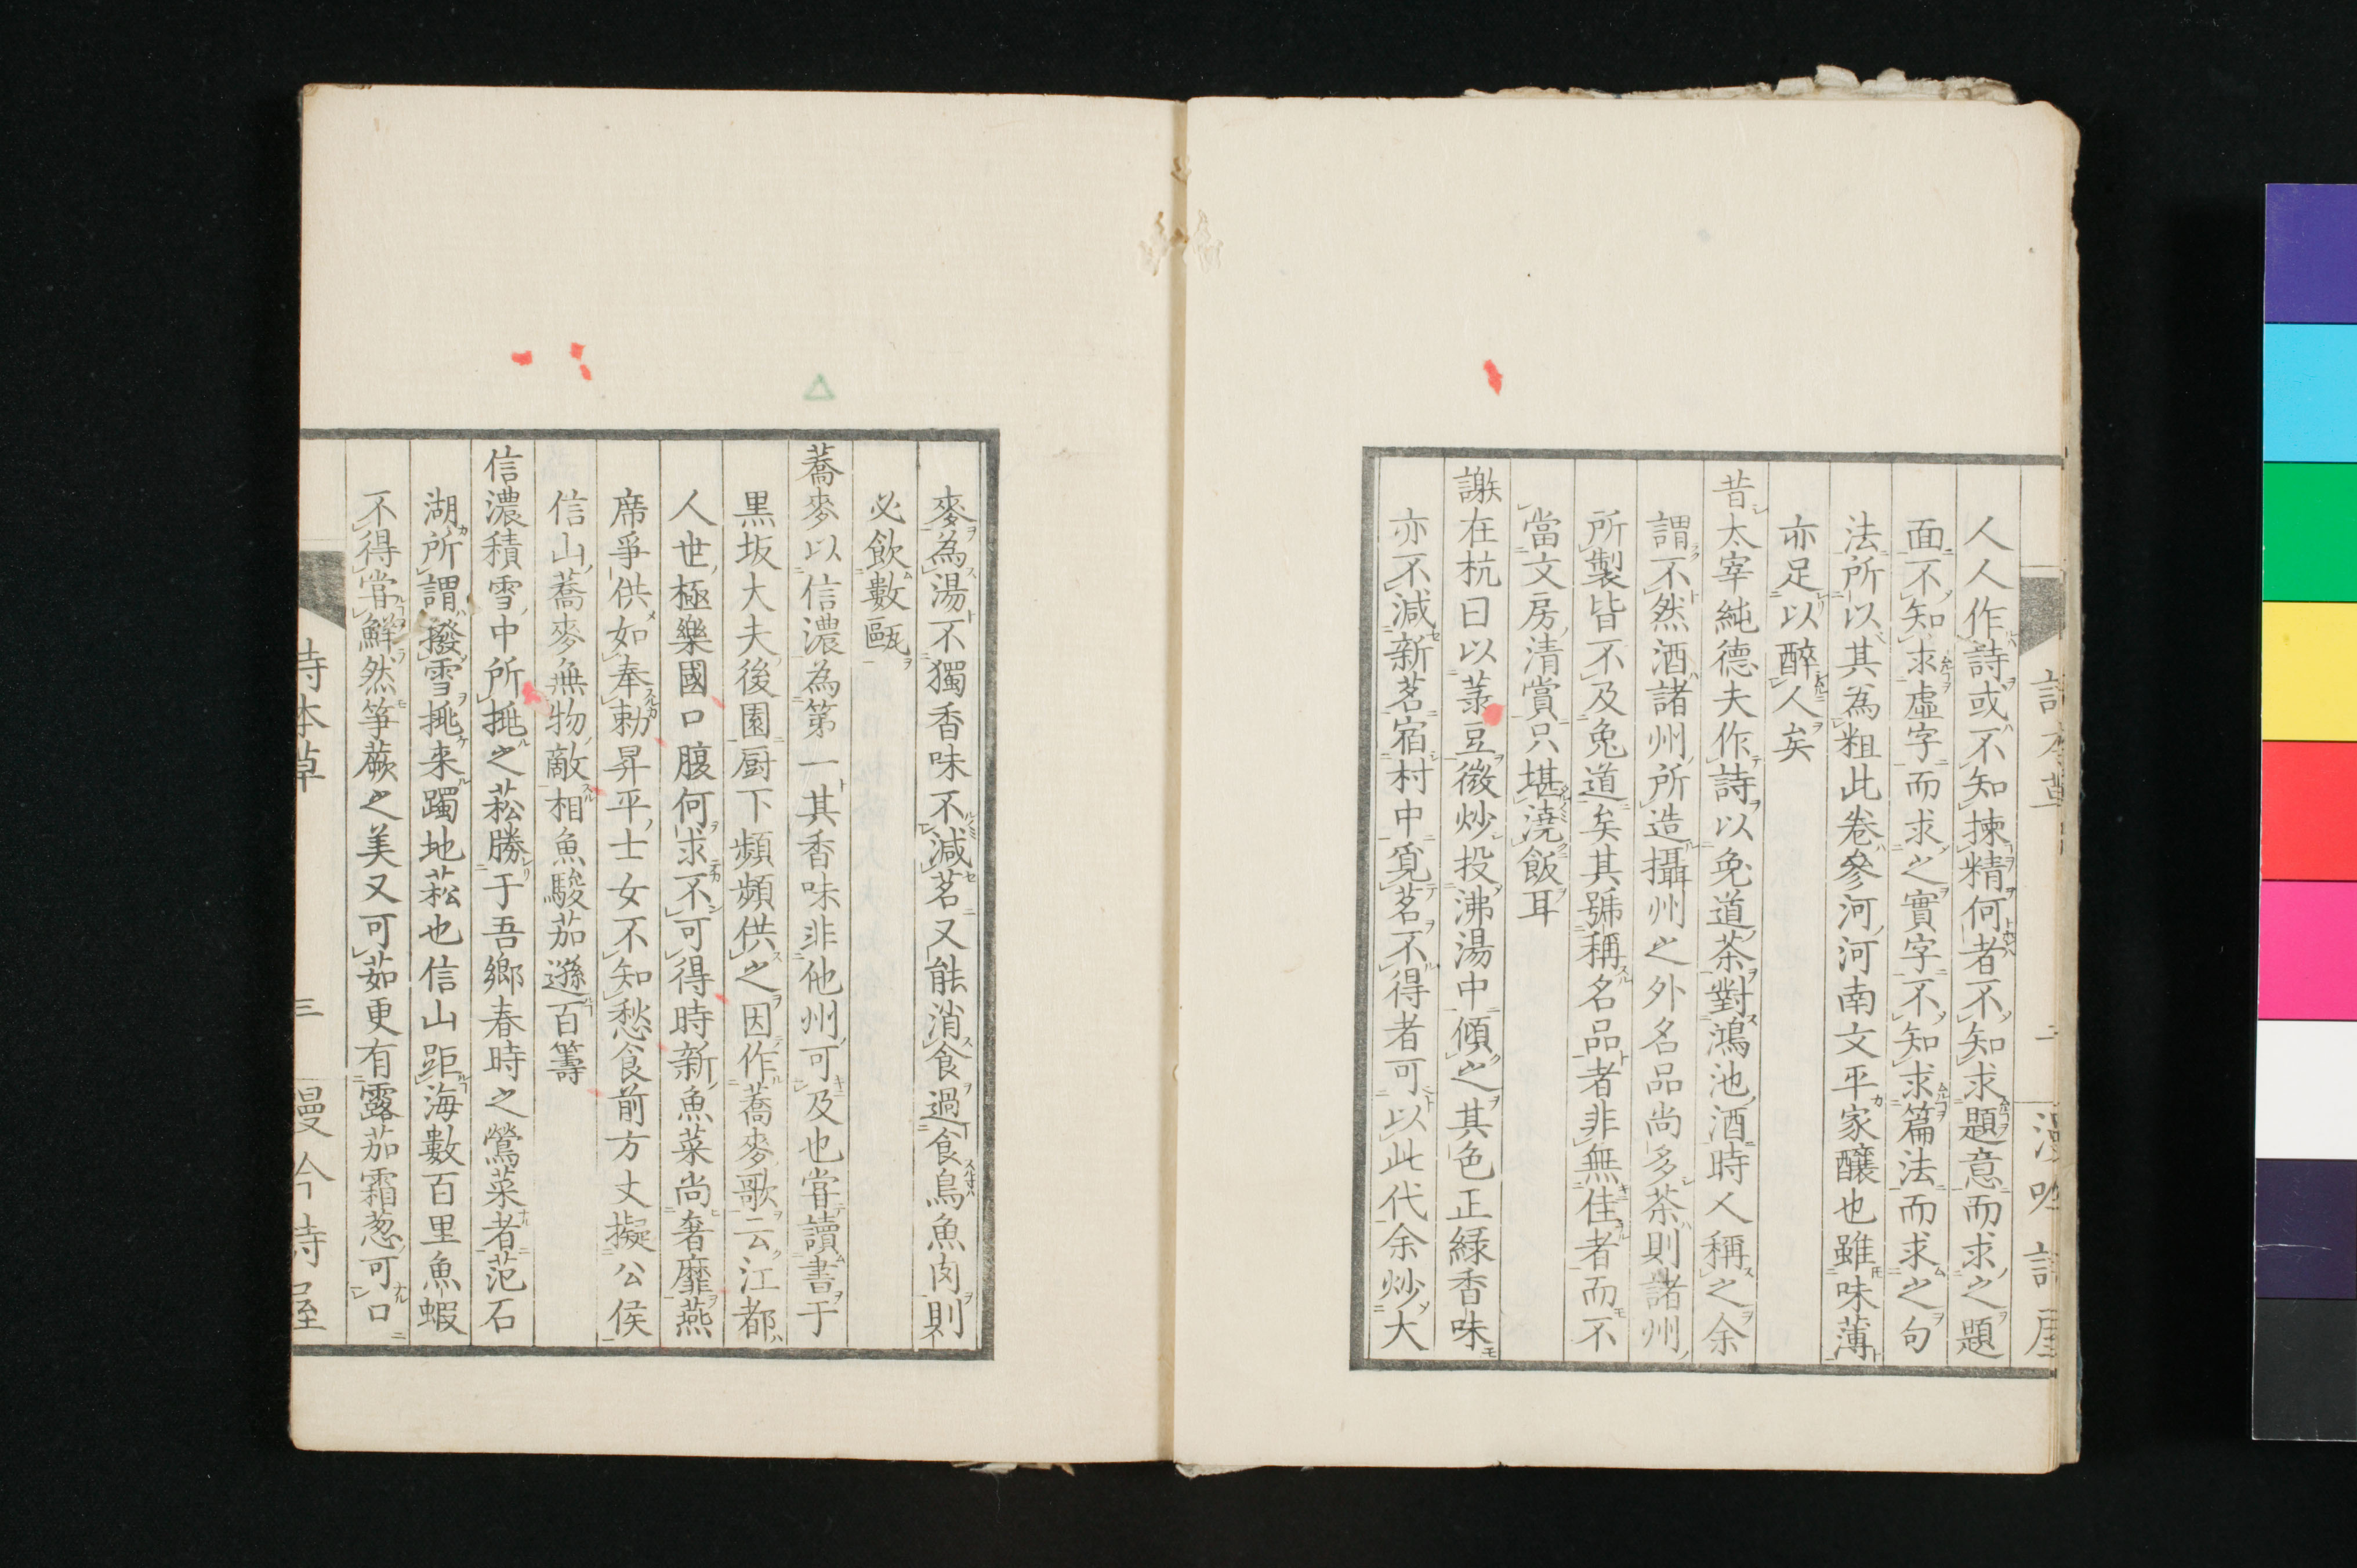 人人作詩或不知揀精何者不知求題意而求之題
面不知求虛字而求之實字不知求篇法而求之句
法所以其為粗此卷參河河南文平家釀也雖味薄
亦足以醉人矣
昔太宰純德夫作詩以兔道茶對鴻池酒時人稱之余
謂不然酒諸州所造攝州之外名品尚多茶則諸州
所製皆不及兔道矣其號稱名品者非無佳者而不
當文房清賞只堪澆飯耳
謝在杭曰以菉豆微炒投沸湯中傾之其色正緑香味
亦不減新茗宿村中覓茗不得者可以此代余炒大
麥為湯不獨香味不減茗又能消食過食鳥魚肉則
必飲數甌
蕎麥以信濃為第一其香味非他州可及也嘗讀書于
黒坂大夫後園厨下頻頻供之因作蕎麥歌云江都
人世極樂國口腹何求不可得時新魚菜尚奢靡燕
席爭供如奉勅昇平士女不知愁食前方丈擬公侯
信山蕎麥無物敵相魚駿茄遜百籌
信濃積雪中所挑之菘勝于吾鄉春時之鶯菜者范石
湖所謂撥雪挑來蹋地菘也信山距海數百里魚蝦
不得嘗鮮然筝蕨之美又可茹更有露茄霜葱可口
詩本草
三